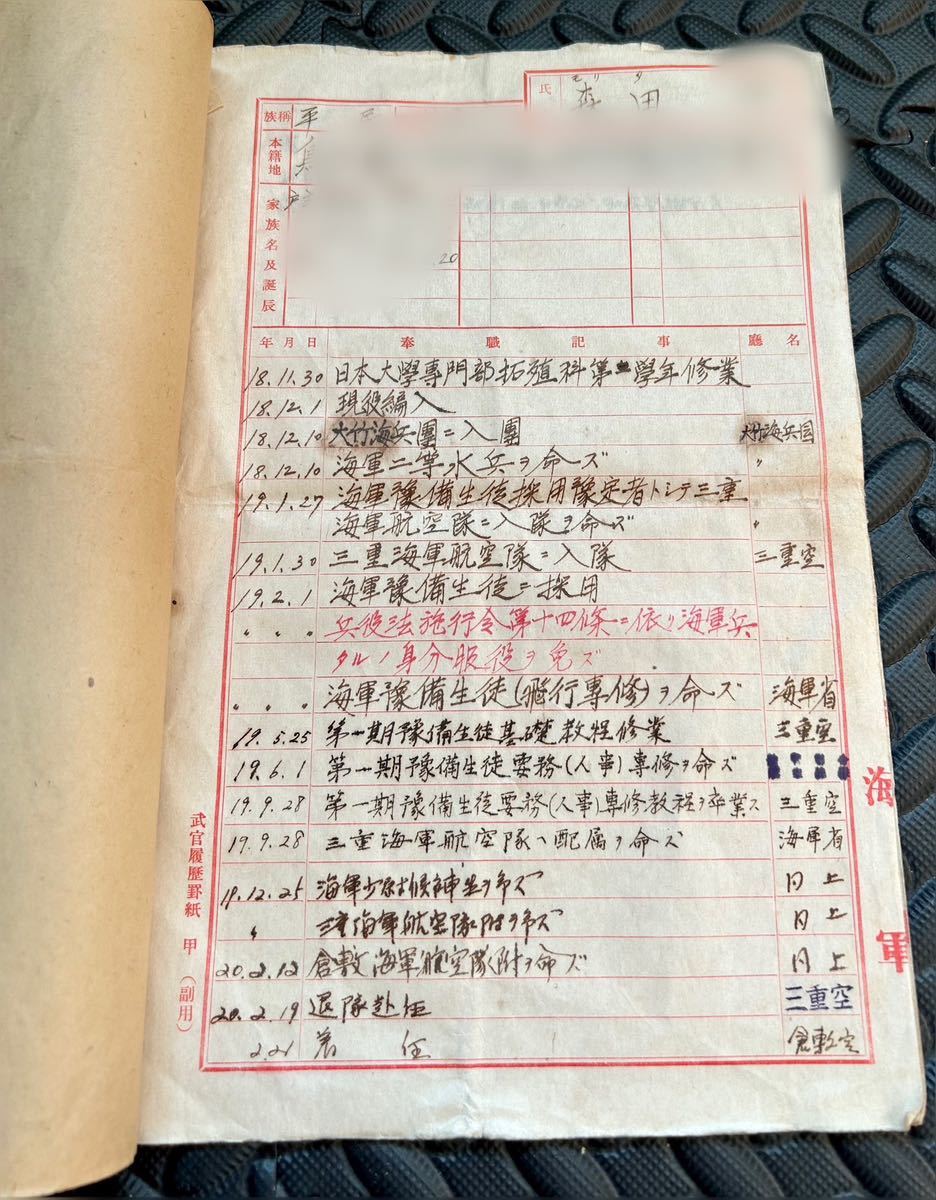 氏
モリタ
森田
族稱 平
本籍地
家族名及誕辰
20
年月日 奉職記事 廳名
18.11.30 日本大學専門部拓殖科第二學年修業
18.12.1 現役編入
18.12.10 大竹海兵團ニ入團 大竹海兵団
18.12.10 海軍二等水兵ヲ命ズ 〃
19.1.27 海軍豫備生徒採用豫定者トシテ三重
海軍航空隊ニ入隊ヲ命ズ 〃
19.1.30 三重海軍航空隊ニ入隊 三重空
19.2.1 海軍豫備生徒ニ採用
〃 〃 〃 兵役法施行令第十四條ニ依リ海軍兵
タルノ身分服役ヲ免ズ
〃 〃 〃 海軍豫備生徒(飛行専修)ヲ命ズ 海軍省
19.5.25 第一期豫備生徒基礎教程修業 三重空
19.6.1 第一期豫備生徒要務(人事)専修ヲ命ズ
19.9.28 第一期豫備生徒要務(人事)専修教程ヲ卒業ス 三重空
19.9.28 三重海軍航空隊ヘ配属ヲ命ズ 海軍省
19.12.25 海軍少尉候補生ヲ命ズ 同上
〃 三重海軍航空隊附ヲ命ズ 同上
20.2.12 倉敷海軍航空隊附ヲ命ズ 同上
20.2.19 退隊赴任 三重空
2.21 着任 倉敷空
武官履歴罫紙 甲 (副用)
海軍